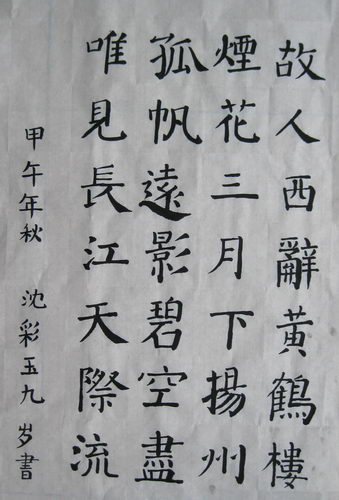 故人西辭黃鶴樓
煙花三月下揚州
孤帆遠影碧空盡
唯見長江天際流
甲午年秋 沈彩玉九岁書